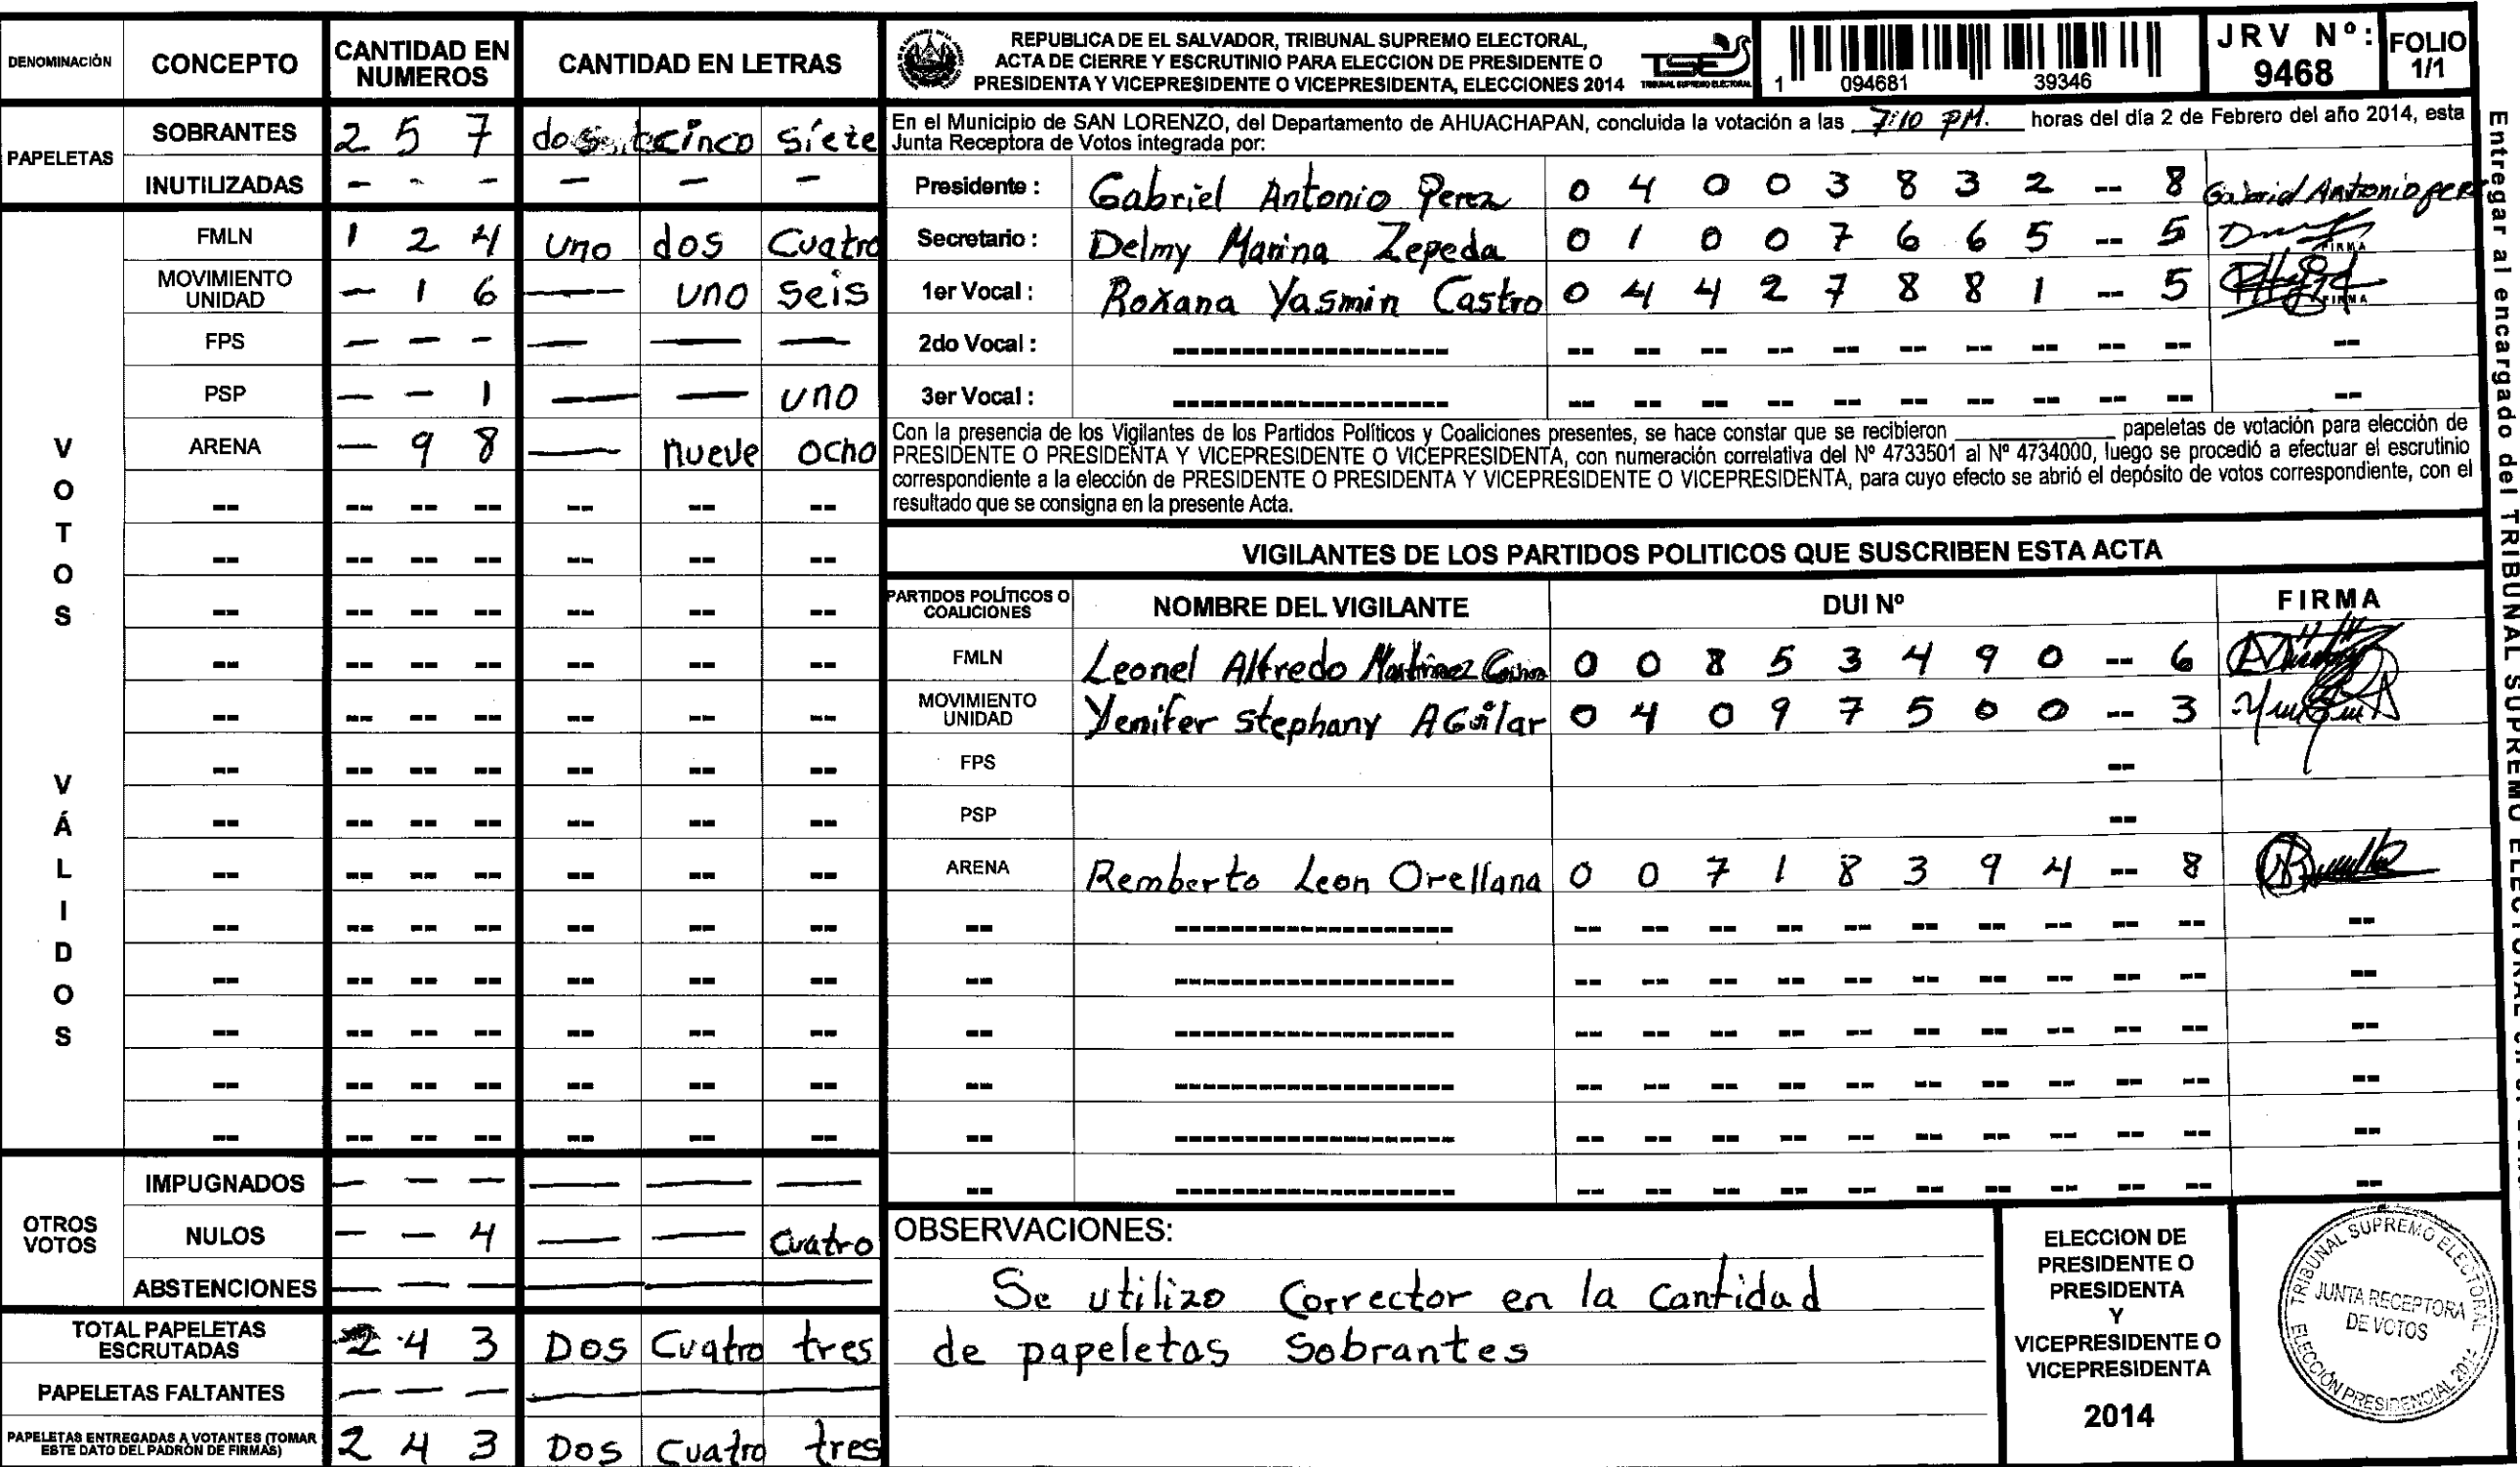 DENOMINACIÓN CONCEPTO CANTIDAD EN NUMEROS CANTIDAD EN LETRAS
PAPELETAS
SOBRANTES 2 5 7 dos cinco siete
INUTILIZADAS - - - - - -
VOTOS VÁLIDOS
FMLN 1 2 4 uno dos Cuatro
MOVIMIENTO UNIDAD - 1 6 - uno seis
FPS - - - - - -
PSP - - 1 - - uno
ARENA - 9 8 - nueve ocho
-- -- -- -- -- -- --
-- -- -- -- -- -- --
-- -- -- -- -- -- --
-- -- -- -- -- -- --
-- -- -- -- -- -- --
-- -- -- -- -- -- --
-- -- -- -- -- -- --
-- -- -- -- -- -- --
-- -- -- -- -- -- --
-- -- -- -- -- -- --
-- -- -- -- -- -- --
-- -- -- -- -- -- --
-- -- -- -- -- -- --
OTROS VOTOS
IMPUGNADOS - - - - - -
NULOS - - 4 - - Cuatro
ABSTENCIONES - - - - - -
TOTAL PAPELETAS ESCRUTADAS 2 4 3 Dos Cuatro tres
PAPELETAS FALTANTES - - -
PAPELETAS ENTREGADAS A VOTANTES (TOMAR ESTE DATO DEL PADRÓN DE FIRMAS) 2 4 3 Dos Cuatro tres
REPUBLICA DE EL SALVADOR, TRIBUNAL SUPREMO ELECTORAL,
ACTA DE CIERRE Y ESCRUTINIO PARA ELECCION DE PRESIDENTE O
PRESIDENTA Y VICEPRESIDENTE O VICEPRESIDENTA, ELECCIONES 2014
TSE
TRIBUNAL SUPREMO ELECTORAL
1 094681 39346
JRV Nº: 9468
FOLIO 1/1
En el Municipio de SAN LORENZO, del Departamento de AHUACHAPAN, concluida la votación a las 7:10 PM. horas del día 2 de Febrero del año 2014, esta
Junta Receptora de Votos integrada por:
Presidente : Gabriel Antonio Perez 0 4 0 0 3 8 3 2 -- 8 Gabriel Antonio per
Secretario : Delmy Marina Zepeda 0 1 0 0 7 6 6 5 -- 5 FIRMA
1er Vocal : Roxana Yasmin Castro 0 4 4 2 7 8 8 1 -- 5 FIRMA
2do Vocal : -------------------- -- -- -- -- -- -- -- -- -- -- --
3er Vocal : -------------------- -- -- -- -- -- -- -- -- -- -- --
Con la presencia de los Vigilantes de los Partidos Políticos y Coaliciones presentes, se hace constar que se recibieron ____________ papeletas de votación para elección de
PRESIDENTE O PRESIDENTA Y VICEPRESIDENTE O VICEPRESIDENTA, con numeración correlativa del Nº 4733501 al Nº 4734000, luego se procedió a efectuar el escrutinio
correspondiente a la elección de PRESIDENTE O PRESIDENTA Y VICEPRESIDENTE O VICEPRESIDENTA, para cuyo efecto se abrió el depósito de votos correspondiente, con el
resultado que se consigna en la presente Acta.
VIGILANTES DE LOS PARTIDOS POLITICOS QUE SUSCRIBEN ESTA ACTA
PARTIDOS POLÍTICOS O COALICIONES NOMBRE DEL VIGILANTE DUI Nº FIRMA
FMLN Leonel Alfredo Martinez 0 0 8 5 3 4 9 0 -- 6
MOVIMIENTO UNIDAD Yenifer stephany AGuilar 0 4 0 9 7 5 0 0 -- 3
FPS --
PSP --
ARENA Remberto Leon Orellana 0 0 7 1 8 3 9 4 -- 8
-- -------------------- -- -- -- -- -- -- -- -- -- -- --
-- -------------------- -- -- -- -- -- -- -- -- -- -- --
-- -------------------- -- -- -- -- -- -- -- -- -- -- --
-- -------------------- -- -- -- -- -- -- -- -- -- -- --
-- -------------------- -- -- -- -- -- -- -- -- -- -- --
-- -------------------- -- -- -- -- -- -- -- -- -- -- --
OBSERVACIONES:
Se utilizo Corrector en la cantidad
de papeletas Sobrantes
ELECCION DE
PRESIDENTE O
PRESIDENTA
Y
VICEPRESIDENTE O
VICEPRESIDENTA
2014
TRIBUNAL SUPREMO ELECTORAL
JUNTA RECEPTORA
DE VOTOS
ELECCIÓN PRESIDENCIAL 2014
Entregar al encargado del TRIBUNAL SUPREMO ELECTORAL